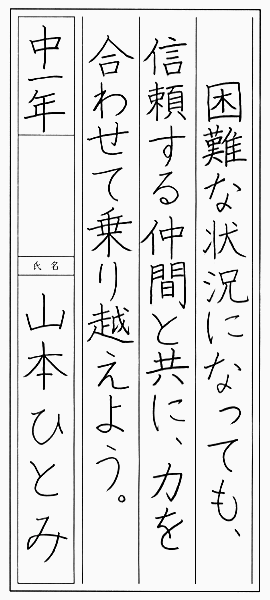 困難な状況になっても、
信頼する仲間と共に、力を
合わせて乗り越えよう。
中一年
氏名
山本ひとみ